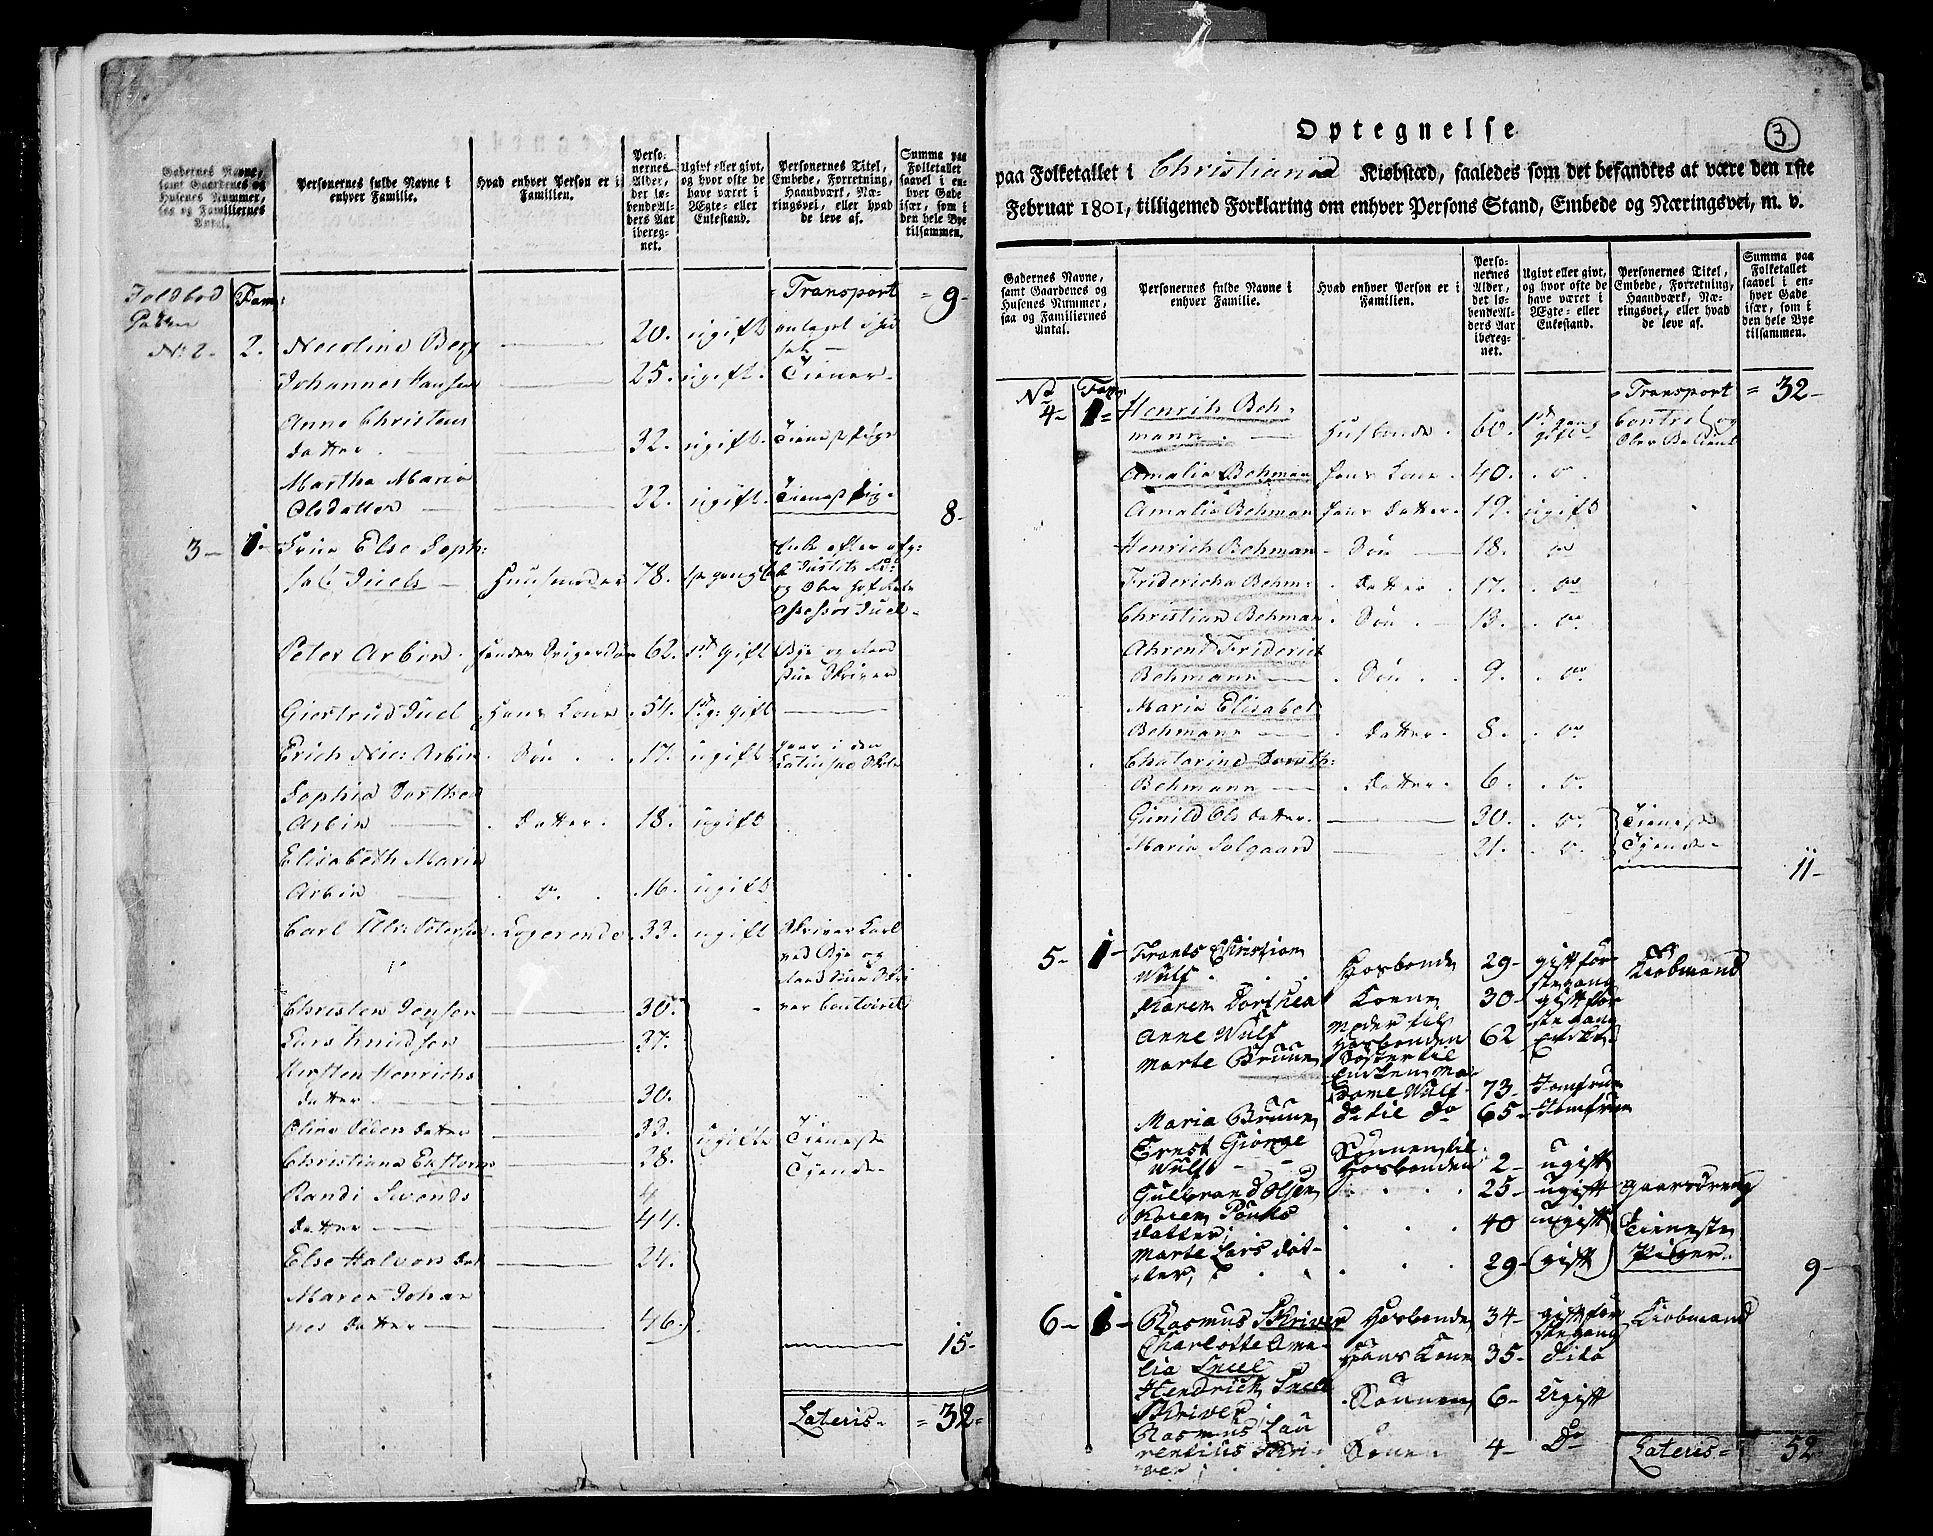 Gadernes Navne,
samt Gaardenes og
Husenes Nummer,
saa og Familiernes
Antal.
Personernes fulde Navne i
enhver Familie.
Hvad enhver Person er i
Familien.
Perso-
nernes
Alder,
det lø-
bende Al-
ders Aar
iberegnet.
Ugivt eller givt,
og hvor ofte de
have været i
Ægte- eller
Enkestand.
Personernes Titel,
Embede, Forretning,
Haandværk, Næ-
ringsvei, eller hvad
de leve af.
Summa paa
Folketallet
saavel i en-
hver Gade
især, som i
den hele Bye
tilsammen.
Toldbod Fam: Transport = 9-
Gaden
No 2. 2. Nicoline Berg 20. ugift
Johannes Hansen 25. ugift. Tiener
Anne Christens
datter. 32. ugift. Tienestpige
Martha Maria
Olsdatter 22. ugift. Tienestpige 8-
3- 1- Frue Else Soph:
sal. Juels Huusmoder 78.
Assessor Juel
Peter Arbin 62. 1ste Gift Bye og
Skriver
Giertrud Juel Hans Kone 54. 1ste g: gift
Erich Nic: Arbin Søn 17. ugift i den
Latinske Skole
Sophia Dorthea
Arbin datter. 18. ugift
Elisabeth Maria
Arbin do. 16. ugift
Carl Ulr: Petersen Logerende 33. ugift Skriver Karl
ved Bye og
Christen Jensen 30.
Lars Knudsen 37.
Kirsten Henrichs
datter 30.
Oline Peders datter 33. ugifte Tieneste
Christiane 28. Tyende
Randi Svends
datter 44.
Else Halvors dat 24.
Maren Johan
nes datter 46. 15-
Lateris = 32=
3
Optegnelse
paa Folketallet i Christiansand Kiøbstæd, saaledes som det befandtes at være den 1ste
Februar 1801, tilligemed Forklaring om enhver Persons Stand, Embede og Næringsvei, m. v.
Gadernes Navne,
samt Gaardenes og
Husenes Nummer,
saa og Familiernes
Antal.
Personernes fulde Navne i
enhver Familie.
Hvad enhver Person er i
Familien.
Perso-
nernes
Alder,
det lø-
bende Al-
ders Aar
iberegnet.
Ugivt eller givt,
og hvor ofte de
have været i
Ægte- eller
Enkestand.
Personernes Titel,
Embede, Forretning,
Haandværk, Næ-
ringsvei, eller hvad
de leve af.
Summa paa
Folketallet
saavel i en-
hver Gade
især, som i
den hele Bye
tilsammen.
No Fam: Transport = 32-
4- 1= Henrich Beh-
mann. Husbonde. 60. 1ste gang
gift
Amalia Behman hans Kone. 40. do
Amalia Behman hans datter. 19. ugift
Henrich Behman Søn 18. do
Fridericha Behm: datter 17. do
Christian Behman Søn 13. do
Ahrend Friderich
Behmann Søn 9. do
Maria Elisabet
Behmann datter. 8. do
Chatarine Doroth:
Behmann datter. 6. do
Gunild Ols datter. 30. do Tieneste
Maria Solgaard 21. do Tyende 11-
5- 1- Frants Christian
Wulf Hosbonde 29- gift før- Kiøbmand
ste gang
Maren Dorthea Koene 30- gift før
ste gang
Anne Wulf Moder til
Hosbonden 62 Enke
Marte Bruun Søster til
Enken Ma-
dame Wulf 73- Jomfrue
Maria Bruun do til do 65- Jomfrue
Ernst Giørge
Wulf Sønnen til
Hosbonden 2- ugift
Gulbrand Olsen 25- ugift gaarsdreng
Karen Pouls
datter 40 ugift Tieneste
Marte Lars dat-
ter, 29- (gift) Piger 9-
6- 1- Rasmus Skriver Hosbonde 34- gift før Kiobmand
ste gang
Charlotte Ama-
lia Sneel Hans Kone 35- dito
Hendrick Sneel
Skriver Sønnen 6- Ugift
Rasmus Lau
rentius Skri-
ver Sønen 4- Do Lateris- 52-